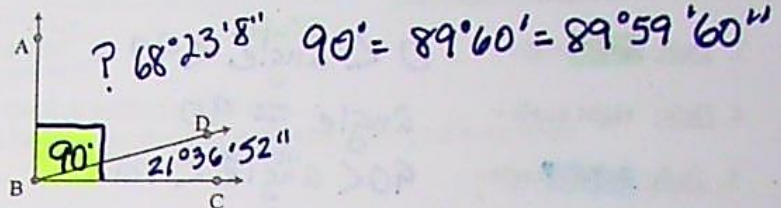 ? 68°23'8" 90° = 89°60' = 89°59'60"
A
D
90°
21°36'52"
B
C